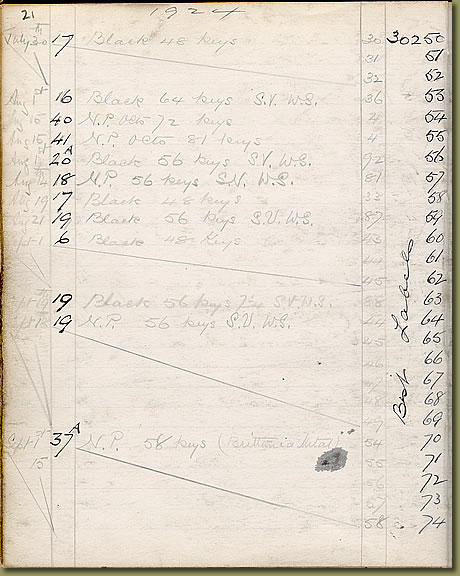 21 1924
July 30th 17 Black 48 keys 30 30250
31 51
32 52
Aug 1st 16 Black 64 keys S.V. W.S. 36 53
15 40 N.P. Octo 72 keys 4 54
Aug 15 41 N.P. Octo 81 keys 4 55
Aug 1st 20A Black 56 keys S.V. W.S. 92 56
Aug 18 N.P. 56 keys S.V. W.S. 81 57
19 17 Black 48 keys 33 58
21 19 Black 56 keys S.V. W.S. 87 59
6 Black 48 Keys 43 60
44 61
45 62
19 Black 56 keys S.V. W.S. 63
19 N.P. 56 keys S.V. W.S. 44 64
65
66
67
68
49 69
Sept 37A N.P. 58 keys (Brittania Metal) 54 70
15 55 71
72
73
58 74
Best Labels